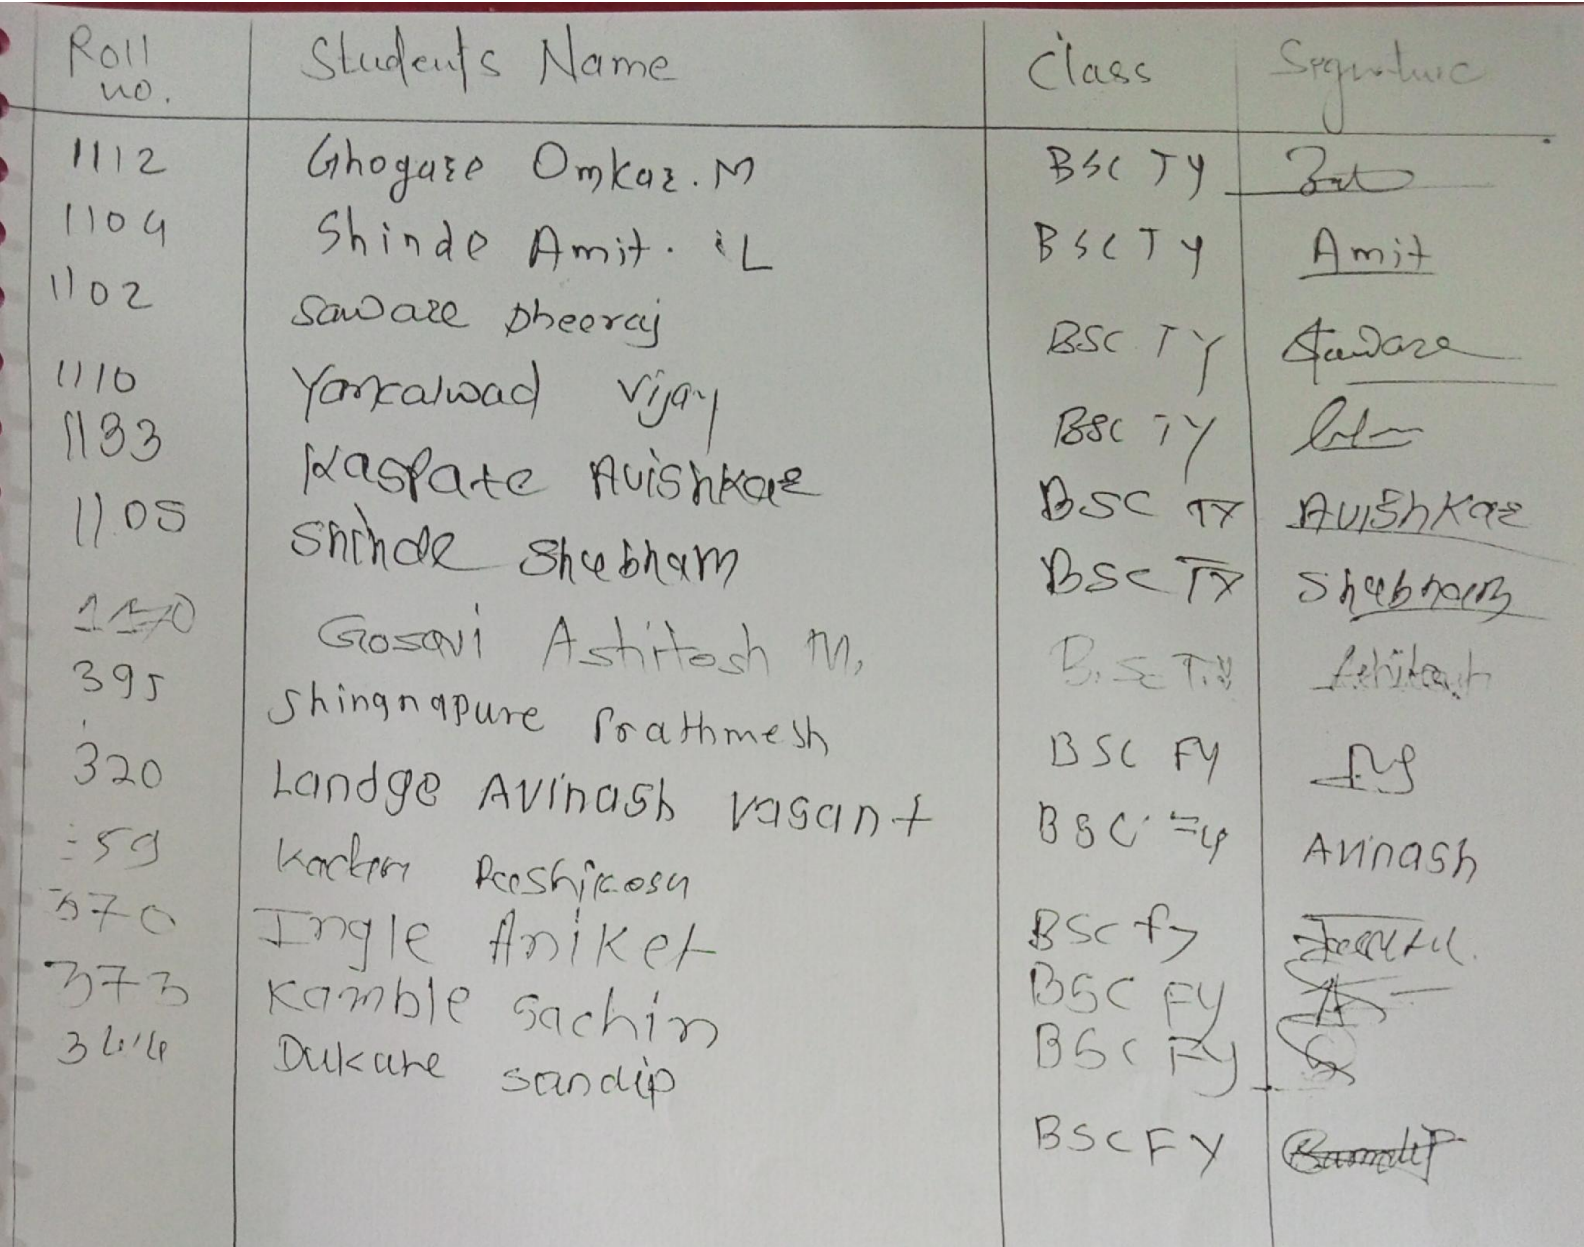 Roll no. Students Name Class Signature
1112 Ghogare Omkar. M BSC TY
1104 Shinde Amit. L BSC TY Amit
1102 Saware Dheeraj BSC TY Saware
1110 Yankalwad Vijay BSC TY
1133 Kaspate Avishkar BSC TY Avishkar
1105 Shinde Shubham BSC TY Shubham
1170 Gosavi Ashitosh M. B.Sc T.Y Ashitosh
395 Shingnapure Prathmesh BSC FY
320 Landge Avinash Vasant BSC FY Avinash
59 BSC fy
370 Ingle Aniket BSC FY
373 Kamble Sachin BSC FY
344 Dukare Sandip BSC FY Sandip